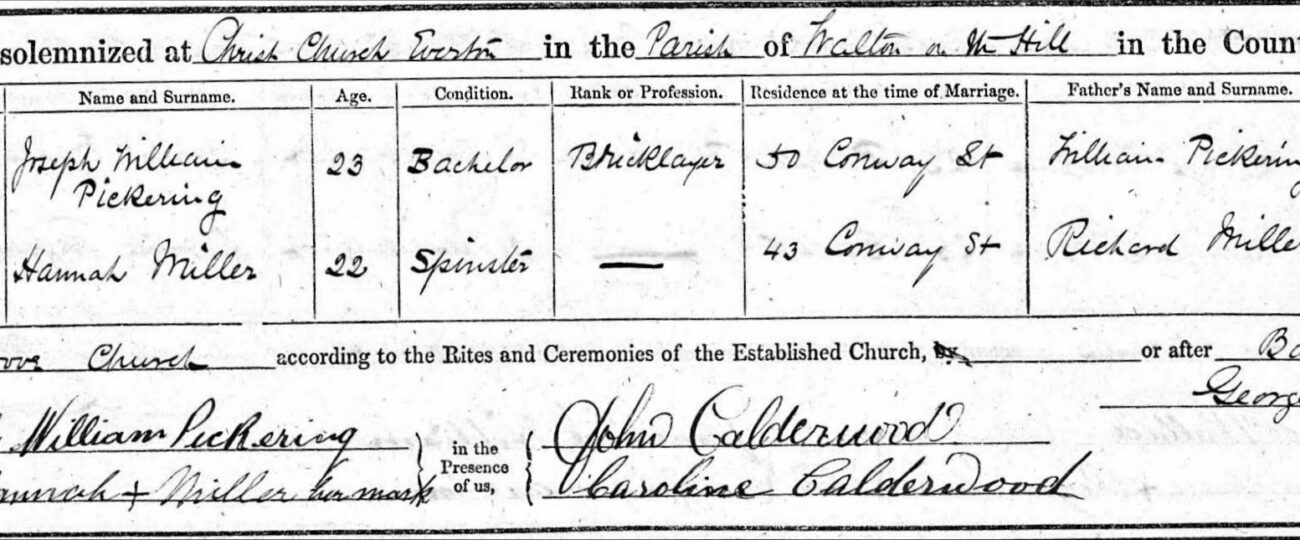 solemnized at Christ Church Everton in the Parish of Walton on the Hill in the Coun
Name and Surname. Age. Condition. Rank or Profession. Residence at the time of Marriage. Father's Name and Surname.
Joseph William 23 Bachelor Bricklayer 50 Conway St William Pickering
Pickering
Hannah Miller 22 Spinster — 43 Conway St Richard Mille
ove Church according to the Rites and Ceremonies of the Established Church, by or after Ba
George
William Pickering in the John Calderwood
Presence
annah + Miller her mark of us, Caroline Calderwood